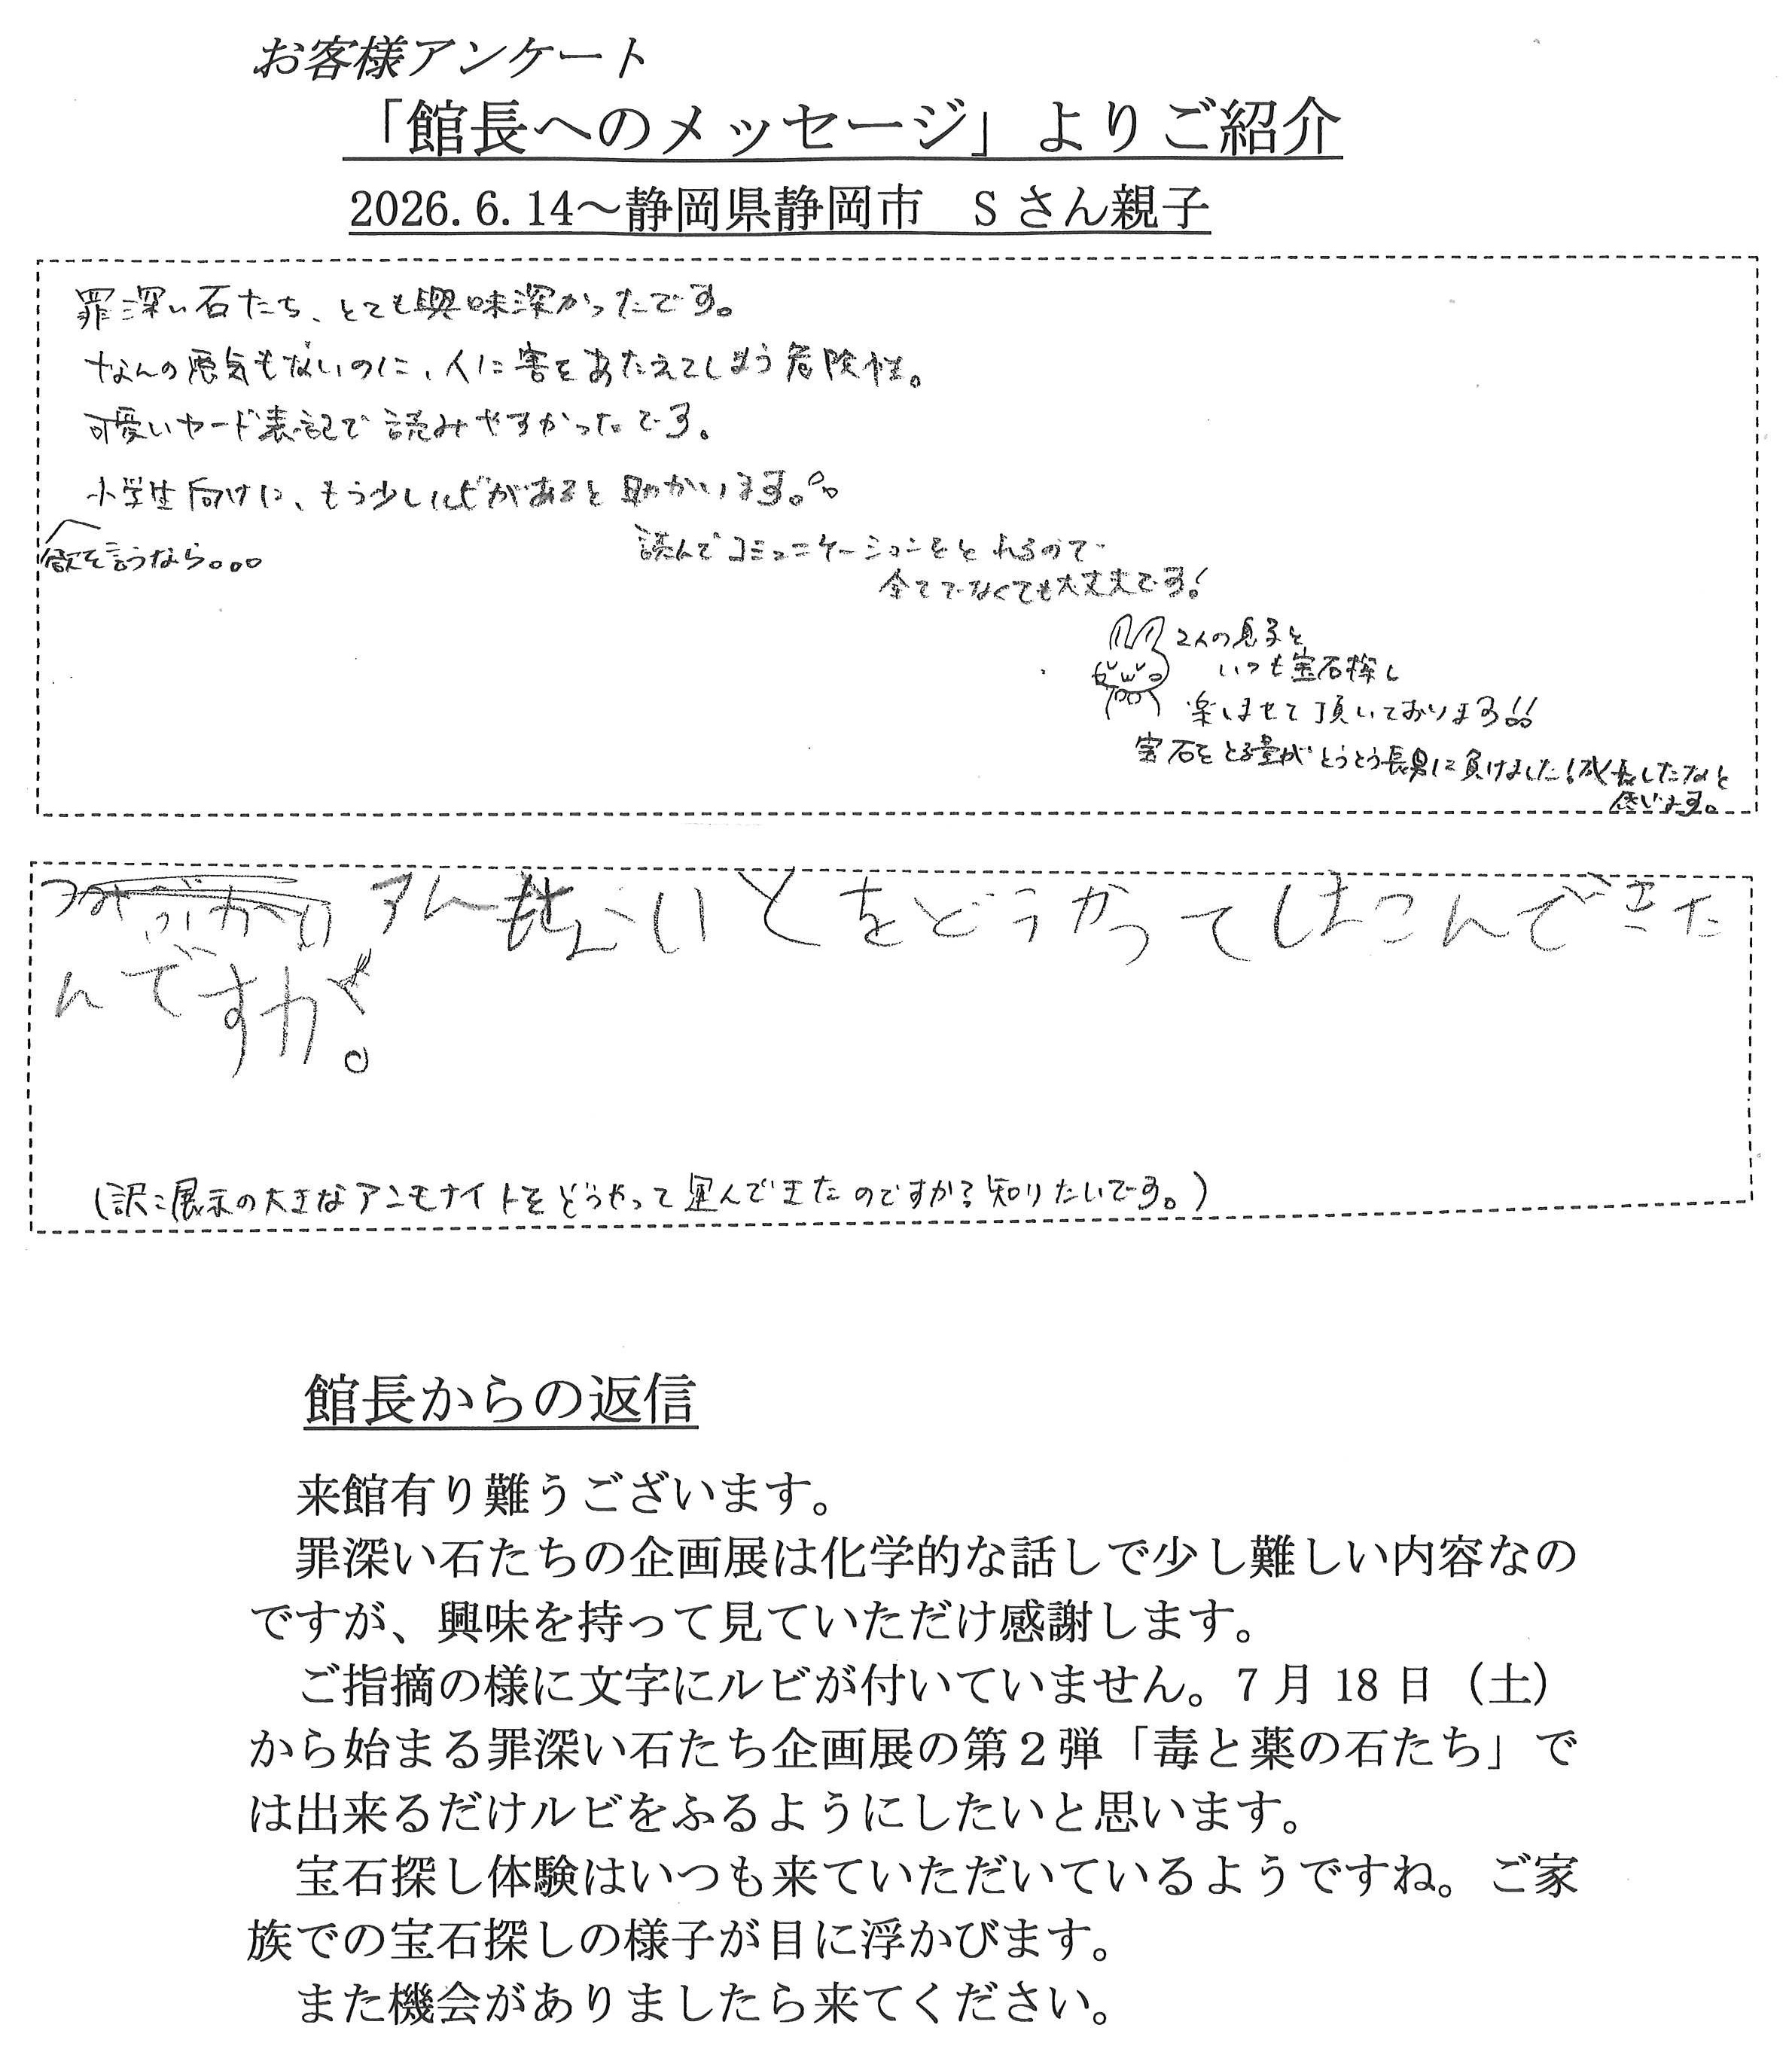 お客様アンケート
「館長へのメッセージ」よりご紹介
2026.6.14～静岡県静岡市　Sさん親子
罪深い石たち、とても興味深かったです。
なんの悪気もないのに、人に害をあたえてしまう危険性。
可愛いカード表記で読みやすかったです。
小学生向けに、もう少しルビがあると助かります。
欲を言うなら。。。
読んでコミュニケーションをとれるので
全てでなくても大丈夫です!
2人の息子と
いつも宝石探し
楽しませて頂いております!!
宝石をとる量がとうとう長男に負けました!成長したなと
思います。
をどうやってはこんできた
んですか。
(訳:展示の大きなアンモナイトをどうやって運んできたのですか?知りたいです。)
館長からの返信
来館有り難うございます。
罪深い石たちの企画展は化学的な話しで少し難しい内容なの
ですが、興味を持って見ていただけ感謝します。
ご指摘の様に文字にルビが付いていません。7月18日（土）
から始まる罪深い石たち企画展の第２弾「毒と薬の石たち」で
は出来るだけルビをふるようにしたいと思います。
宝石探し体験はいつも来ていただいているようですね。ご家
族での宝石探しの様子が目に浮かびます。
また機会がありましたら来てください。